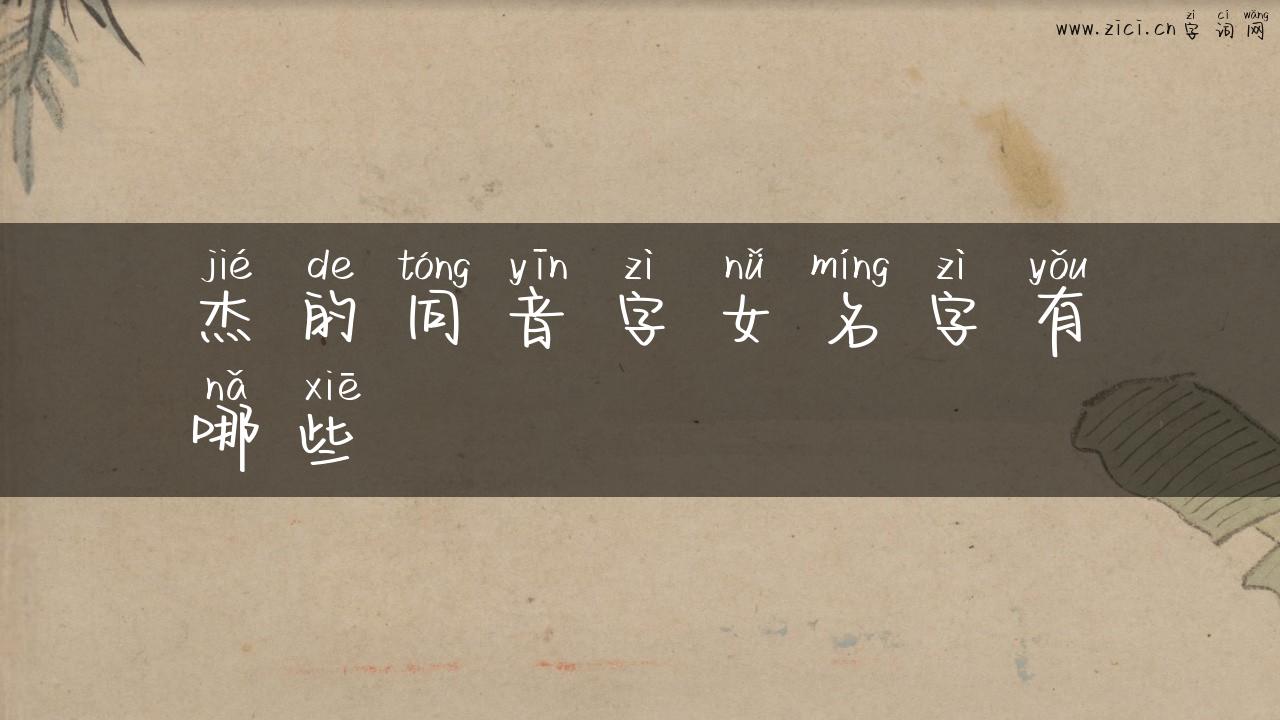 zì cí wǎng
www.zici.cn 字词网
jié de tóng yīn zì nǚ míng zì yǒu
杰的同音字女名字有
nǎ xiē
哪些